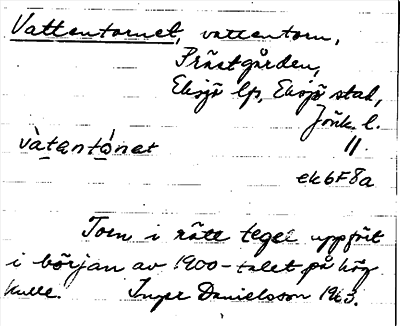 Vattentornet, vattentorn,
Prästgården,
Eksjö lfs, Eksjö stad,
Jönk. l.
vàtentónet 11.
ek6F8a
Torn i rött tegel uppfört
i början av 1900-talet på hög
kulle. Inger Danielsson 1963.